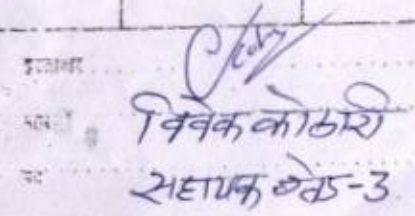 हस्ताक्षर
विवेक कोठारी
पद सहायक ग्रेड-3